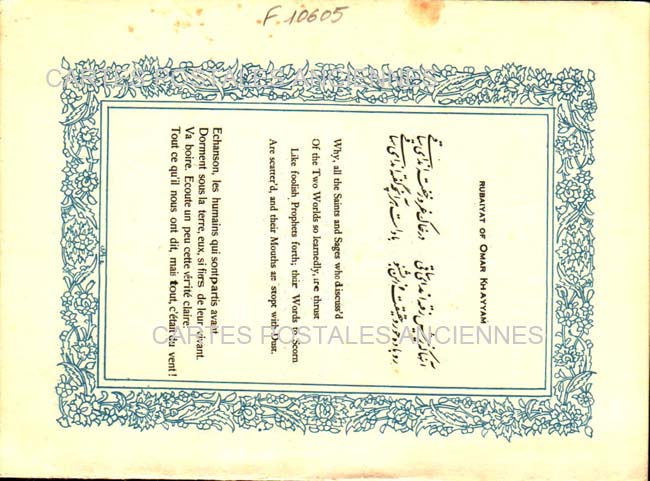 F 10605
CARTES POSTALES ANCIENNES
RUBAIYAT OF OMAR KHAYYAM
آنانکه ز پیش رفته اند ای ساقی در خاک غرور خفته اند ای ساقی
رو باده خور و حقیقت از من بشنو باد است هر آنچه گفته اند ای ساقی
Why, all the Saints and Sages who discuss'd
Of the Two Worlds so learnedly, are thrust
Like foolish Prophets forth; their Words to Scorn
Are scatter'd, and their Mouths are stopt with Dust.
Echanson, les humains qui sont partis avant
Dorment sous la terre, eux, si fiers de leur vivant.
Va boire. Ecoute un peu cette vérité claire:
Tout ce qu'il nous ont dit, mais tout, c'était du vent !
CARTES POSTALES ANCIENNES